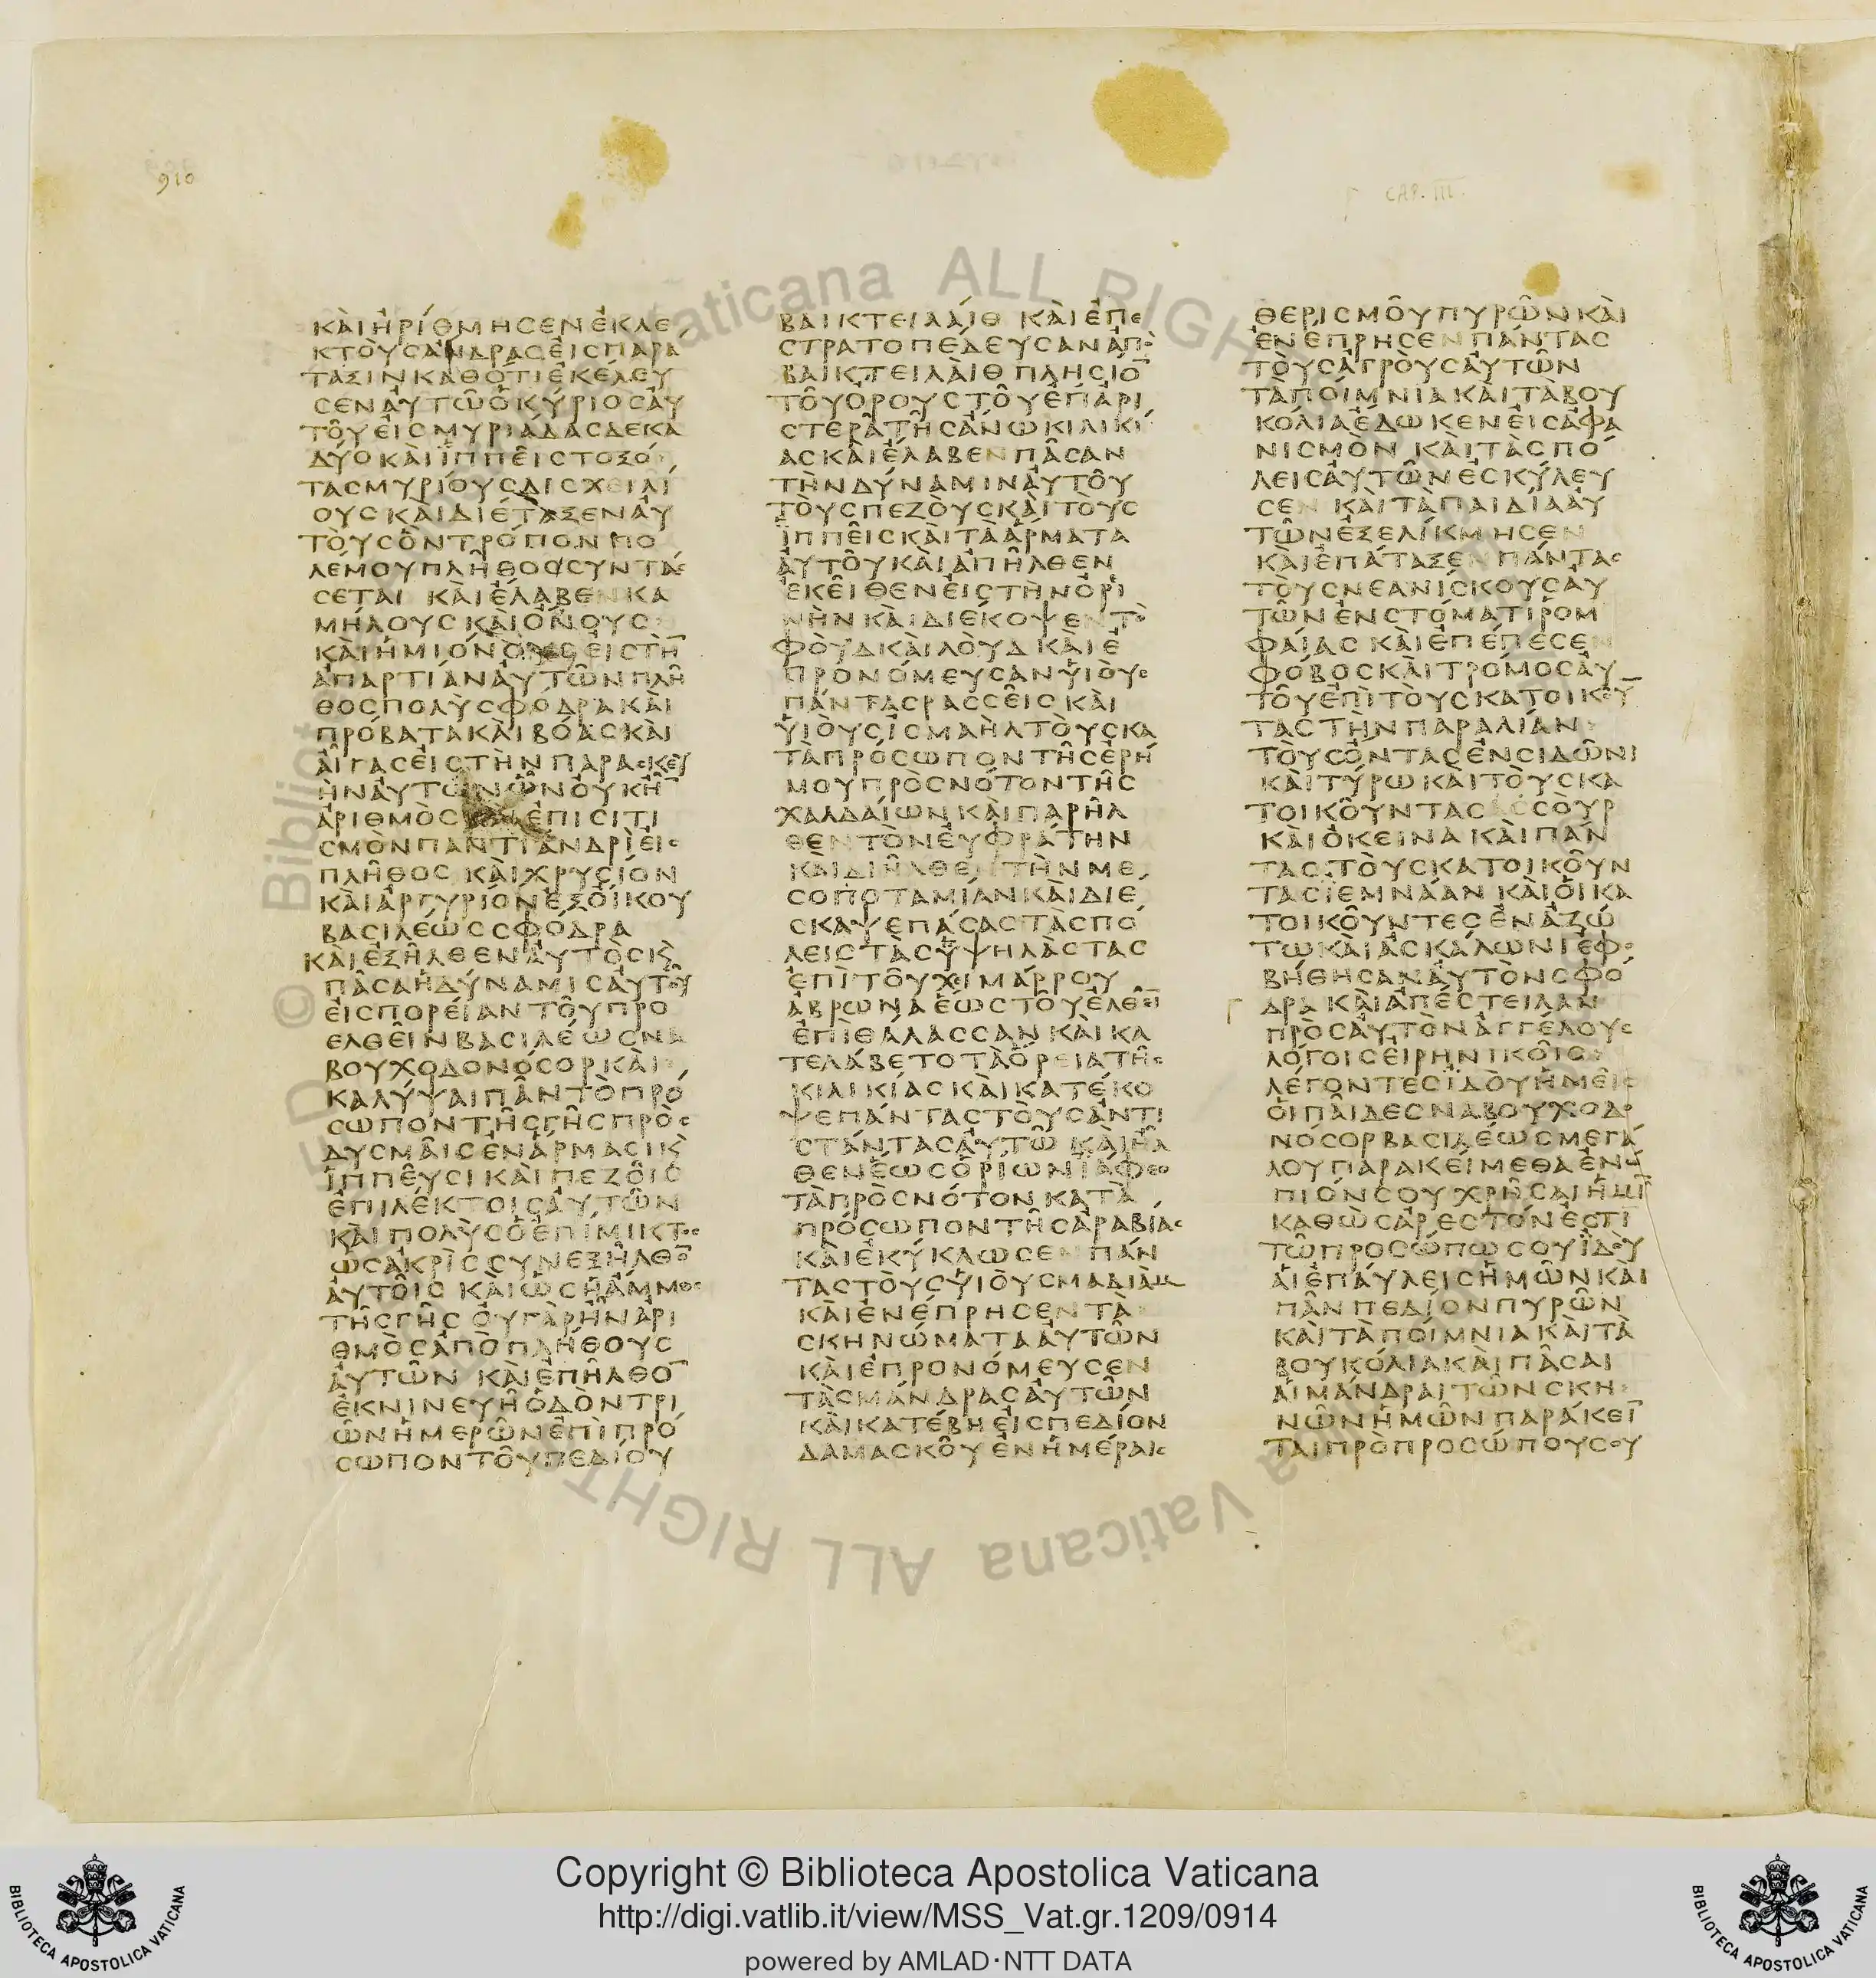 910
CAP. III.
ΚΑΙΗΡΙΘΜΗСΕΝΕΚΛΕ
ΚΤΟΥСΑΝΔΡΑСΕΙСΠΑΡΑ
ΤΑΞΙΝΚΑΘΟΤΙΕΚΕΛΕΥ
СΕΝΑΥΤΩΟΚΥΡΙΟСΑΥ
ΤΟΥΕΙСΜΥΡΙΑΔΑСΔΕΚΑ
ΔΥΟΚΑΙΙΠΠΕΙСΤΟΞΟ
ΤΑСΜΥΡΙΟΥСΔΙСΧΕΙΛΙ
ΟΥСΚΑΙΔΙΕΤΑΞΕΝΑΥ
ΤΟΥСΟΝΤΡΟΠΟΝΠΟ
ΛΕΜΟΥΠΛΗΘΟССΥΝΤΑС
СΕΤΑΙ ΚΑΙΕΛΑΒΕΝΚΑ
ΜΗΛΟΥСΚΑΙΟΝΟΥС
ΚΑΙΗΜΙΟΝΟΥСΕΙСΤΗ̅
ΑΠΑΡΤΙΑΝΑΥΤΩΝΠΛΗ
ΘΟСΠΟΛΥСΦΟΔΡΑΚΑΙ
ΠΡΟΒΑΤΑΚΑΙΒΟΑСΚΑΙ
ΑΙΓΑСΕΙСΤΗΝΠΑΡΑСΚΕΥ
ΗΝΑΥΤΩΝΩΝΟΥΚΗ̅
ΑΡΙΘΜΟС ΕΠΙСΙΤΙ
СΜΟΝΠΑΝΤΙΑΝΔΡΙΕΙС
ΠΛΗΘΟС ΚΑΙΧΡΥСΙΟΝ
ΚΑΙΑΡΓΥΡΙΟΝΕΞΟΙΚΟΥ
ΒΑСΙΛΕΩССΦΟΔΡΑ
ΚΑΙΕΞΗΛΘΕΝΑΥΤΟСΚ
ΠΑСΑΗΔΥΝΑΜΙСΑΥΤΟΥ
ΕΙСΠΟΡΕΙΑΝΤΟΥΠΡΟ
ΕΛΘΕΙΝΒΑСΙΛΕΩСΝΑ
ΒΟΥΧΟΔΟΝΟСΟΡΚΑΙ
ΚΑΛΥΨΑΙΠΑΝΤΟΠΡΟ
СΩΠΟΝΤΗСΓΗСΠΡΟС
ΔΥСΜΑΙСΕΝΑΡΜΑСΙΚ
ΙΠΠΕΥСΙΚΑΙΠΕΖΟΙС
ΕΠΙΛΕΚΤΟΙСΑΥΤΩΝ
ΚΑΙΠΟΛΥСΟΕΠΙΜΙΚΤΟС
ΩСΑΚΡΙССΥΝΕΞΗΛΘΟ̅
ΑΥΤΟΙС ΚΑΙΩСΗΑΜΜΟС
ΤΗСΓΗС ΟΥΓΑΡΗΝΑΡΙ
ΘΜΟСΑΠΟΠΛΗΘΟΥС
ΑΥΤΩΝ ΚΑΙΕΠΗΛΘΟ̅
ΕΚΝΙΝΕΥΗΟΔΟΝΤΡΙ
ΩΝΗΜΕΡΩΝΕΠΙΠΡΟ
СΩΠΟΝΤΟΥΠΕΔΙΟΥ
ΒΑΙΚΤΕΙΛΑΙΘ ΚΑΙΕΠΕ
СΤΡΑΤΟΠΕΔΕΥСΑΝΑΠΟ
ΒΑΙΚΤΕΙΛΑΙΘΠΛΗСΙΟ̅
ΤΟΥΟΡΟΥСΤΟΥΕΠΑΡΙ
СΤΕΡΑΤΗСΑΝΩΚΙΛΙΚΙ
ΑСΚΑΙΕΛΑΒΕΝΠΑСΑΝ
ΤΗΝΔΥΝΑΜΙΝΑΥΤΟΥ
ΤΟΥСΠΕΖΟΥСΚΑΙΤΟΥС
ΙΠΠΕΙСΚΑΙΤΑΑΡΜΑΤΑ
ΑΥΤΟΥΚΑΙΑΠΗΛΘΕΝ
ΕΚΕΙΘΕΝΕΙСΤΗΝΟΡΙ
ΝΗΝΚΑΙΔΙΕΚΟΨΕΝΤΟ
ΦΟΥΔΚΑΙΛΟΥΔΚΑΙΕ
ΠΡΟΝΟΜΕΥСΑΝΥΙΟΥС
ΠΑΝΤΑСΡΑССΕΙСΚΑΙ
ΥΙΟΥСΙСΜΑΗΛΤΟΥСΚΑ
ΤΑΠΡΟСΩΠΟΝΤΗСΕΡΗ
ΜΟΥΠΡΟСΝΟΤΟΝΤΗС
ΧΑΛΔΑΙΩΝΚΑΙΠΑΡΗΛ
ΘΕΝΤΟΝΕΥΦΡΑΤΗΝ
ΚΑΙΔΙΗΛΘΕΝΤΗΝΜΕ
СΟΠΟΤΑΜΙΑΝΚΑΙΔΙΕ
СΚΑΨΕΠΑСΑСΤΑСΠΟ
ΛΕΙСΤΑСΥΨΗΛΑСΤΑС
ΕΠΙΤΟΥΧΙΜΑΡΡΟΥ
ΑΒΡΩΝΑΕΩСΤΟΥΕΛΘΕΙ̅
ΕΠΙΘΑΛΑССΑΝΚΑΙΚΑ
ΤΕΛΑΒΕΤΟΤΑΟΡΕΙΑΤΗС
ΚΙΛΙΚΙΑСΚΑΙΚΑΤΕΚΟ
ΨΕΠΑΝΤΑСΤΟΥСΑΝΤΙ
СΤΑΝΤΑСΑΥΤΩ ΚΑΙΗΛ
ΘΕΝΕΩСΟΡΙΩΝΙΑΦΕΘ
ΤΑΠΡΟСΝΟΤΟΝΚΑΤΑ
ΠΡΟСΩΠΟΝΤΗСΑΡΑΒΙΑС
ΚΑΙΕΚΥΚΛΩСΕΝΠΑΝ
ΤΑСΤΟΥСΥΙΟΥСΜΑΔΙΑΜ
ΚΑΙΕΝΕΠΡΗСΕΝΤΑ
СΚΗΝΩΜΑΤΑΑΥΤΩΝ
ΚΑΙΕΠΡΟΝΟΜΕΥСΕΝ
ΤΑСΜΑΝΔΡΑСΑΥΤΩΝ
ΚΑΙΚΑΤΕΒΗΕΙСΠΕΔΙΟΝ
ΔΑΜΑСΚΟΥΕΝΗΜΕΡΑΙС
ΘΕΡΙСΜΟΥΠΥΡΩΝΚΑΙ
ΕΝΕΠΡΗСΕΝΠΑΝΤΑС
ΤΟΥСΑΓΡΟΥСΑΥΤΩΝ
ΤΑΠΟΙΜΝΙΑΚΑΙΤΑΒΟΥ
ΚΟΛΙΑΕΔΩΚΕΝΕΙСΑΦΑ
ΝΙСΜΟΝ ΚΑΙΤΑСΠΟ
ΛΕΙСΑΥΤΩΝΕСΚΥΛΕΥ
СΕΝ ΚΑΙΤΑΠΑΙΔΙΑΑΥ
ΤΩΝΕΞΕΛΙΚΜΗСΕΝ
ΚΑΙΕΠΑΤΑΞΕΝΠΑΝΤΑС
ΤΟΥСΝΕΑΝΙСΚΟΥСΑΥ
ΤΩΝΕΝСΤΟΜΑΤΙΡΟΜ
ΦΑΙΑС ΚΑΙΕΠΕΠΕСΕΝ
ΦΟΒΟСΚΑΙΤΡΟΜΟСΑΥ
ΤΟΥΕΠΙΤΟΥСΚΑΤΟΙΚΟΥ̅
ΤΑСΤΗΝΠΑΡΑΛΙΑΝ
ΤΟΥСΟΝΤΑСΕΝСΙΔΩΝΙ
ΚΑΙΤΥΡΩΚΑΙΤΟΥСΚΑ
ΤΟΙΚΟΥΝΤΑС СΟΥΡ
ΚΑΙΟΚΕΙΝΑΚΑΙΠΑΝ
ΤΑСΤΟΥСΚΑΤΟΙΚΟΥΝ
ΤΑСΙΕΜΝΑΑΝ ΚΑΙΟΙΚΑ
ΤΟΙΚΟΥΝΤΕСΕΝΑΖΩ
ΤΩΚΑΙΑСΚΑΛΩΝΙΕΦΟ
ΒΗΘΗСΑΝΑΥΤΟΝСΦΟ
ΔΡΑ ΚΑΙΑΠΕСΤΕΙΛΑΝ
ΠΡΟСΑΥΤΟΝΑΓΓΕΛΟΥС
ΛΟΓΟΙСΕΙΡΗΝΙΚΟΙС
ΛΕΓΟΝΤΕСΙΔΟΥΗΜΕΙС
ΟΙΠΑΙΔΕСΝΑΒΟΥΧΟΔΟ
ΝΟСΟΡΒΑСΙΛΕΩСΜΕΓΑ
ΛΟΥΠΑΡΑΚΕΙΜΕΘΑΕΝΩ
ΠΙΟΝСΟΥΧΡΗСΑΙΗΜΙ̅
ΚΑΘΩСΑΡΕСΤΟΝΕСΤΙ
ΤΩΠΡΟСΩΠΩСΟΥΙΔΟΥ
ΑΙΕΠΑΥΛΕΙСΗΜΩΝΚΑΙ
ΠΑΝΠΕΔΙΟΝΠΥΡΩΝ
ΚΑΙΤΑΠΟΙΜΝΙΑΚΑΙΤΑ
ΒΟΥΚΟΛΙΑΚΑΙΠΑСΑΙ
ΑΙΜΑΝΔΡΑΙΤΩΝСΚΗ
ΝΩΝΗΜΩΝΠΑΡΑΚΕΙ̅
ΤΑΙΠΡΟΠΡΟСΩΠΟΥСΟΥ
© Biblioteca Vaticana ALL RIGHTS
Copyright © Biblioteca Apostolica Vaticana
http://digi.vatlib.it/view/MSS_Vat.gr.1209/0914
powered by AMLAD·NTT DATA
BIBLIOTECA APOSTOLICA VATICANA
BIBLIOTECA APOSTOLICA VATICANA